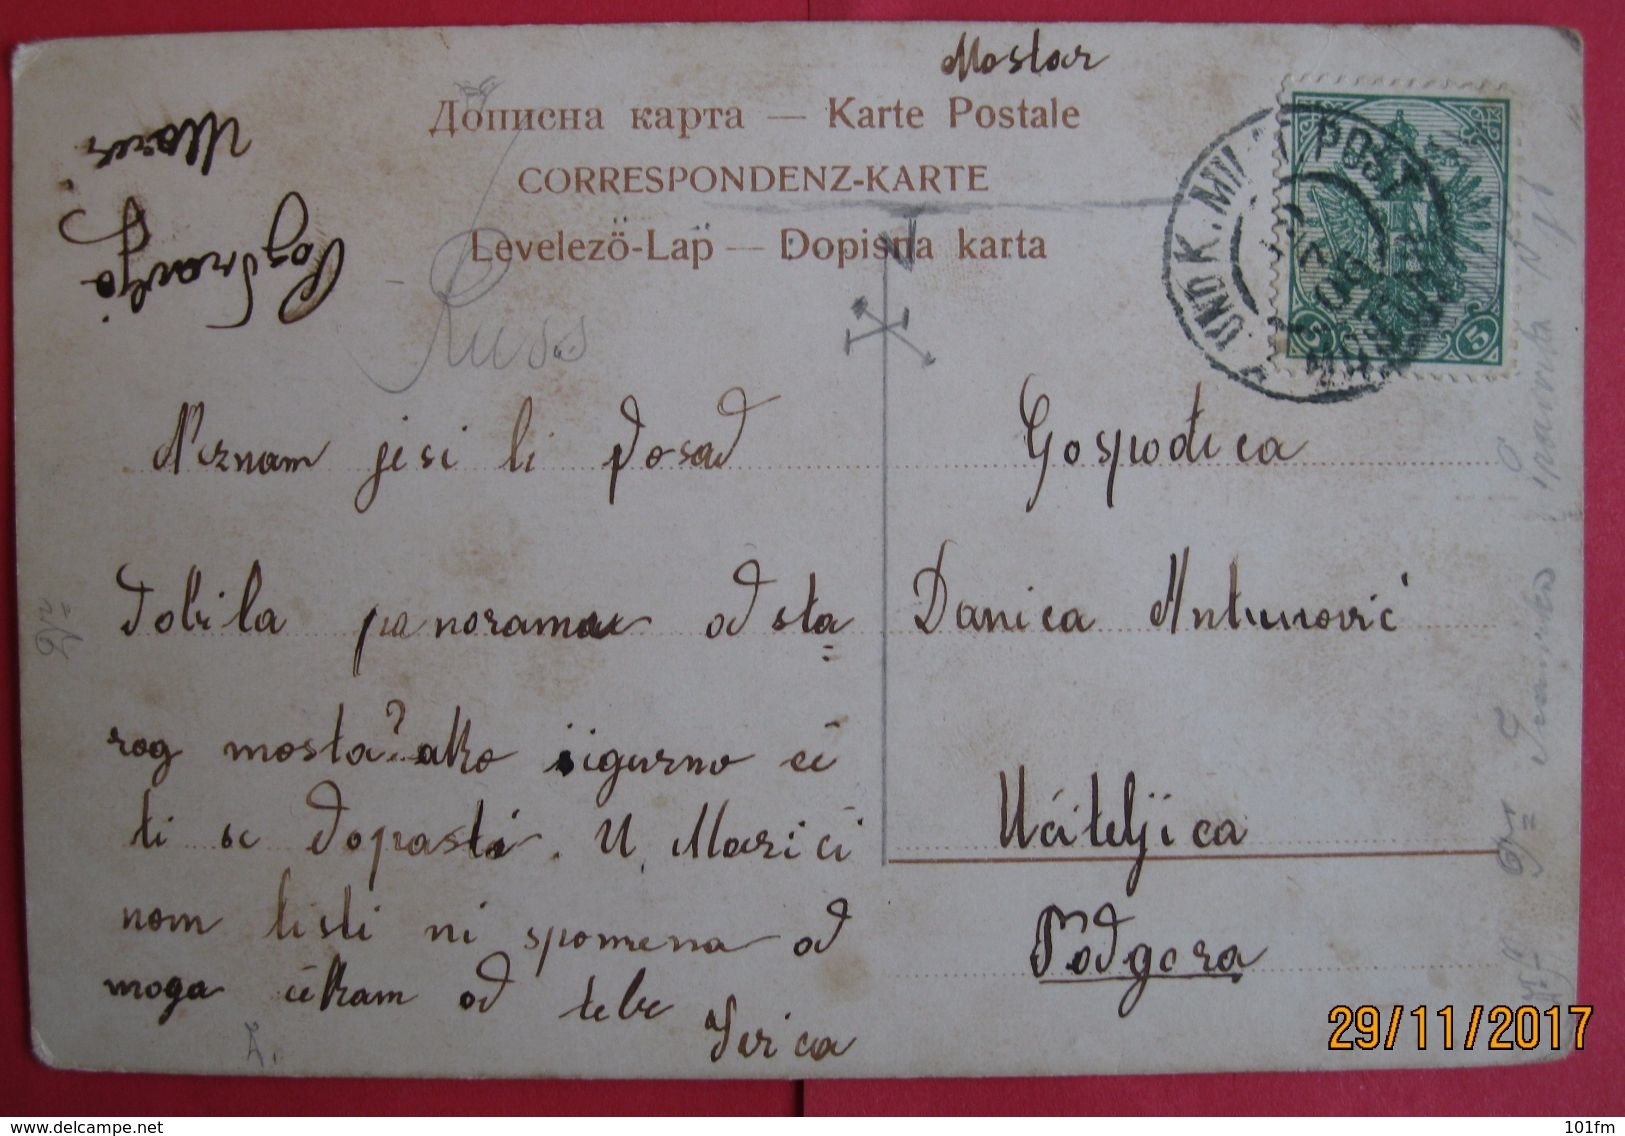 Mostar
Дописна карта — Karte Postale
CORRESPONDENZ-KARTE
Levelező-Lap — Dopisna karta
K. UND K. MILIT. POST
5 5
Pozdravljo
Russ
Neznam jesi li dosad
dobila panoramu od sta
rog mosta? ako sigurno će
ti se dopasti. U Marici
nom listi ni spomena od
moga čekam od tebe
Ivica
Gospođica
Danica Antunović
Učiteljica
Podgora
29/11/2017
www.delcampe.net
101fm